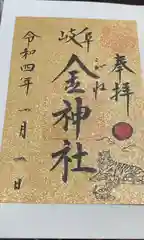 奉拝
岐阜
金神社
こがね
令和四年一月一日